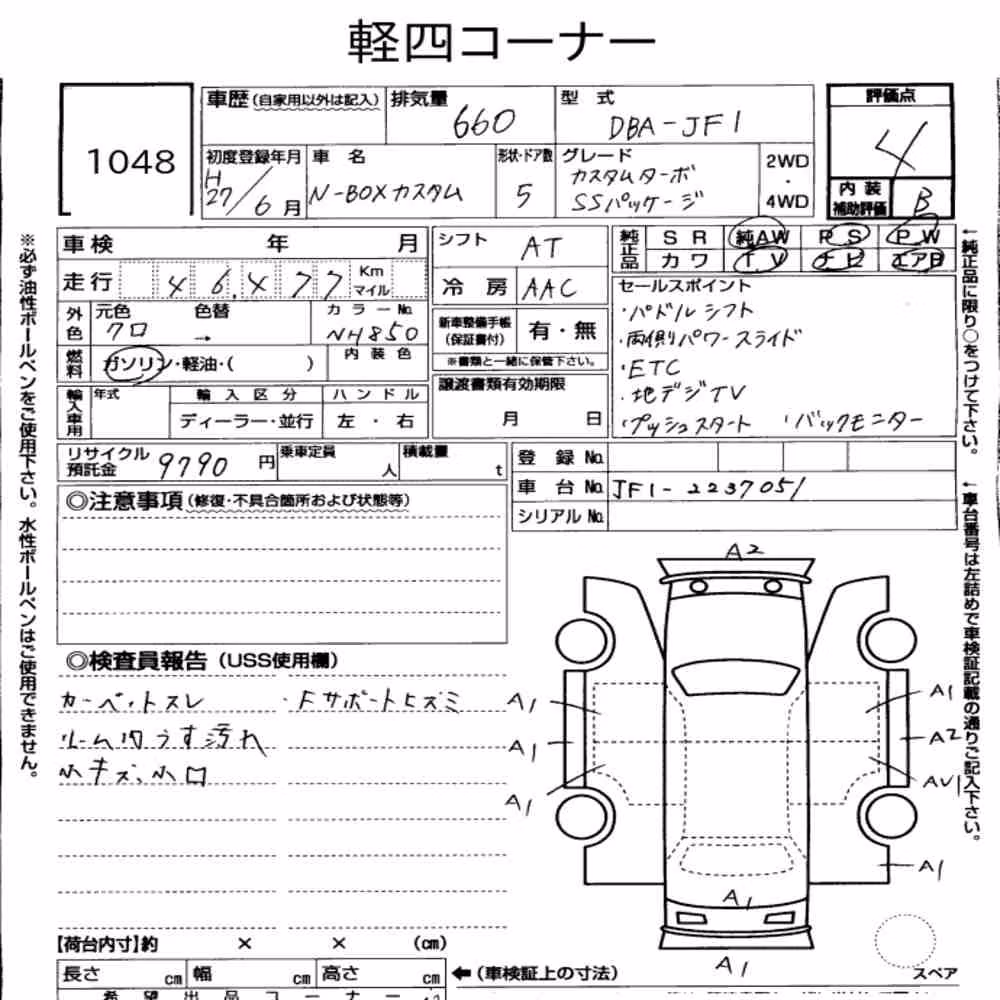 軽四コーナー
1048
車歴(自家用以外は記入) 排気量 660 型式 DBA-JF1
評価点 4
初度登録年月 H27/6月 車名 N-BOXカスタム 形状・ドア数 5 グレード カスタムターボ SSパッケージ 2WD・4WD
内装補助評価 B
車検 年 月
シフト AT
純正品 SR 純AW PS PW
カワ TV ナビ エアB
走行 46,477 Km マイル
冷房 AAC
セールスポイント
・パドルシフト
・両側パワースライド
・ETC
・地デジTV
・プッシュスタート ・バックモニター
外色 元色 クロ 色替 → カラーNo. NH850
新車整備手帳(保証書付) 有・無
※書類と一緒に保管下さい。
燃料 ガソリン・軽油・( ) 内装色
譲渡書類有効期限 月 日
輸入車用 年式 輸入区分 ハンドル
ディーラー・並行 左・右
リサイクル預託金 9790円 乗車定員 人 積載量 t
登録No.
車台No. JF1-2237051
シリアルNo.
◎注意事項(修復・不具合箇所および状態等)
◎検査員報告(USS使用欄)
カーペットスレ ・Fサポートヒズミ
ルーム内うす汚れ
小キズ、小凹
A2
A1
A1
A1
A1
A2
AU1
A1
A1
A1
スペア
【荷台内寸】約 × × (cm)
長さ cm 幅 cm 高さ cm ←(車検証上の寸法)
希望出品コーナー
※必ず油性ボールペンをご使用下さい。水性ボールペンはご使用できません。
←純正品に限り○をつけて下さい。
←車台番号は左詰めで車検証記載の通りご記入下さい。